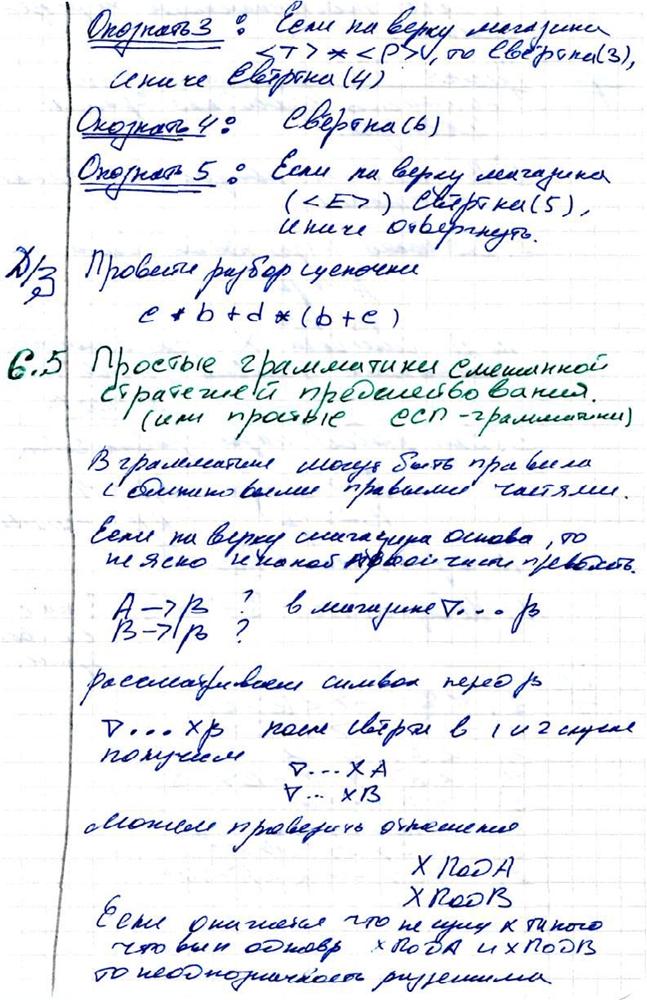 Опознать 3 : Если на верху магазина
<T> * <P>, то Свёртка(3),
иначе Свёртка(4)
Опознать 4 : Свёртка(6)
Опознать 5 : Если на верху магазина
(<E>) Свёртка(5),
иначе отвергнуть.
Д/з Провести разбор цепочки
c * b + d * (b + c)
6.5 Простые грамматики смешанной
стратегией предшествования.
(или простые ССП-грамматики)
В грамматике могут быть правила
с одинаковыми правыми частями.
Если на верху магазина основа, то
не ясно к какой части
A → β ? в магазине ∇ ... β
B → β ?
рассматриваем символ перед β
∇ ... Xβ после свёртки в 1 и 2 случае
получим
∇ ... XA
∇ ... XB
Можем проверить отношения
X ПОД A
X ПОД B
Если что не сущ X такого
что вып одновр X ПОД A и X ПОД B
то неоднозначность разрешима